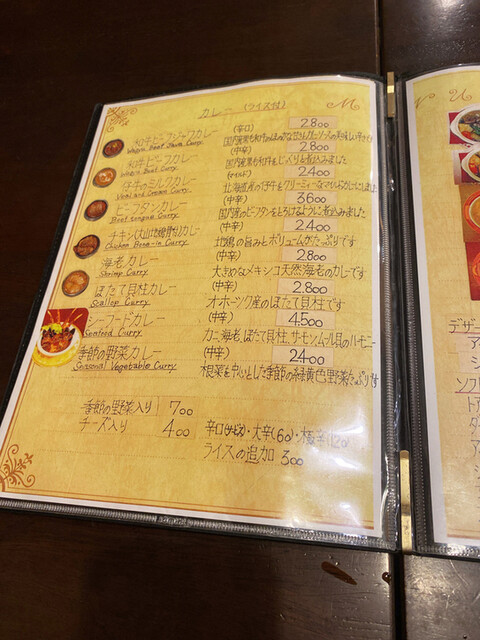 カレー (ライス付)
M
和牛ビーフジャワカレー (辛口) 2.800
Wagyu Beef Jawa Curry
和牛ビーフカレー (中辛) 2.800
Wagyu Beef Curry 国内産黒毛和牛をじっくり煮込みました
仔牛のミルクカレー (マイルド) 2.400
Veal and Cream Curry 北海道産の仔牛をクリーミーなマイルドカレーにしました
ビータンカレー (中辛) 3.600
Beef tongue Curry 国内産のビーフタンをとろけるように煮込みました
チキン(大山地鶏骨付)カレー (中辛) 2.400
Chicken Bone-in Curry 地鶏の旨みとボリュームがたっぷりです
海老カレー (中辛) 2.800
Shrimp Curry 大きめなメキシコ天然海老のカレーです
ほたて貝柱カレー (中辛) 2.800
Scallop Curry オホーツク産のほたて貝柱です
シーフードカレー (中辛) 4.500
Seafood Curry カニ、海老、ほたて貝柱、サーモン、ムール貝のハーモニー
季節の野菜カレー (中辛) 2.400
Seasonal Vegetable Curry 根菜を中心とした季節の緑黄色野菜たっぷりです
季節の野菜入り 700
チーズ入り 400
ライスの追加 300
N U
デザー
ソフト